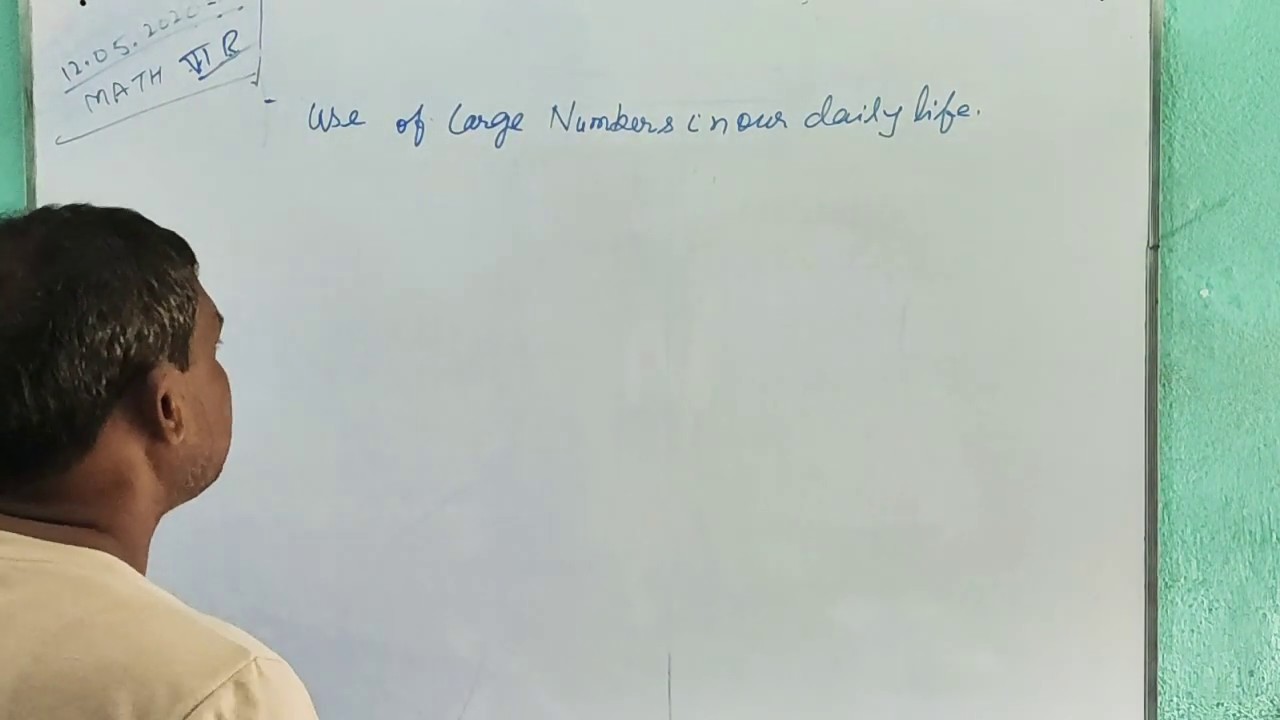 12.05.2020
MATH VI B
- Use of Large Numbers in our daily life.